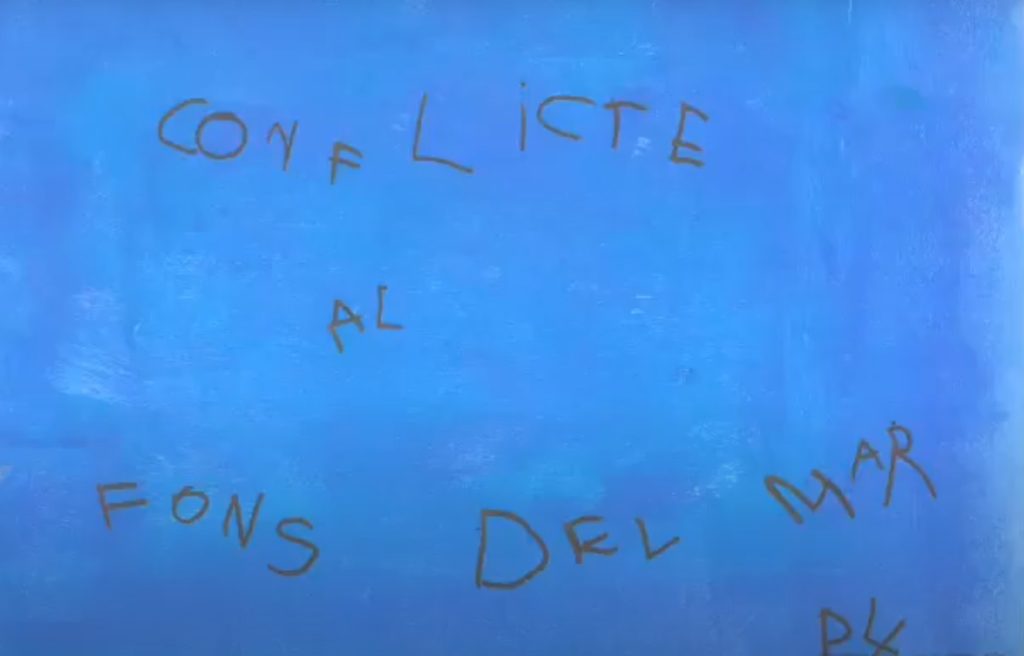 CONFLiCTE
AL
FONS DEL MAR
P4